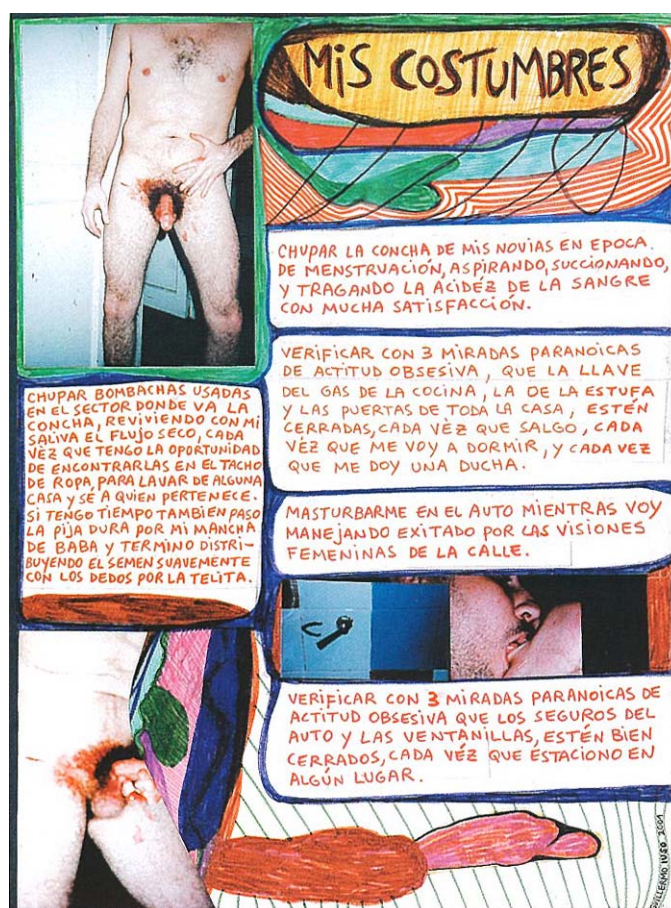 MIS COSTUMBRES
CHUPAR LA CONCHA DE MIS NOVIAS EN EPOCA
DE MENSTRUACIÓN, ASPIRANDO, SUCCIONANDO,
Y TRAGANDO LA ACIDÉZ DE LA SANGRE
CON MUCHA SATISFACCIÓN.
VERIFICAR CON 3 MIRADAS PARANOICAS
DE ACTITUD OBSESIVA, QUE LA LLAVE
DEL GAS DE LA COCINA, LA DE LA ESTUFA
Y LAS PUERTAS DE TODA LA CASA, ESTÉN
CERRADAS, CADA VÉZ QUE SALGO, CADA
VÉZ QUE ME VOY A DORMIR, Y CADA VEZ
QUE ME DOY UNA DUCHA.
CHUPAR BOMBACHAS USADAS
EN EL SECTOR DONDE VA LA
CONCHA, REVIVIENDO CON MI
SALIVA EL FLUJO SECO, CADA
VÉZ QUE TENGO LA OPORTUNIDAD
DE ENCONTRARLAS EN EL TACHO
DE ROPA, PARA LAVAR DE ALGUNA
CASA Y SÉ A QUIEN PERTENECE.
SI TENGO TIEMPO TAMBIEN PASO
LA PIJA DURA POR MI MANCHA
DE BABA Y TERMINO DISTRI-
BUYENDO EL SEMEN SUAVEMENTE
CON LOS DEDOS POR LA TELITA.
MASTURBARME EN EL AUTO MIENTRAS VOY
MANEJANDO EXITADO POR LAS VISIONES
FEMENINAS DE LA CALLE.
VERIFICAR CON 3 MIRADAS PARANOICAS DE
ACTITUD OBSESIVA QUE LOS SEGUROS DEL
AUTO Y LAS VENTANILLAS, ESTÉN BIEN
CERRADOS, CADA VÉZ QUE ESTACIONO EN
ALGÚN LUGAR.
GUILLERMO IUSO 2001